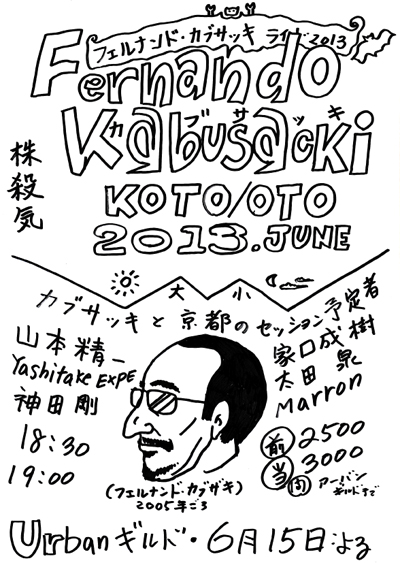 フェルナンド・カブサッキ ライヴ・2013
Fernando
Kabusacki
カブサッキ
株殺気
KOTO/OTO
2013.JUNE
大 小
カブサッキと京都のセッション予定者
山本精一
Yoshitake EXPE
神田剛
家口成樹
太田泉
Marron
18:30
19:00
前 2500
当 3000
(フェルナンド・カブサキ)
2005年ごろ
Urbanギルド・6月15日よる